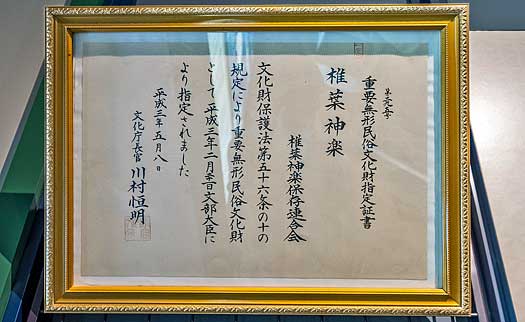 重要無形民俗文化財指定証書
椎葉神楽
椎葉神楽保存連合会
文化財保護法第五十六条の十の
規定により重要無形民俗文化財
として平成三年二月 日文部大臣に
より指定されました
平成三年五月八日
文化庁長官 川村恒明